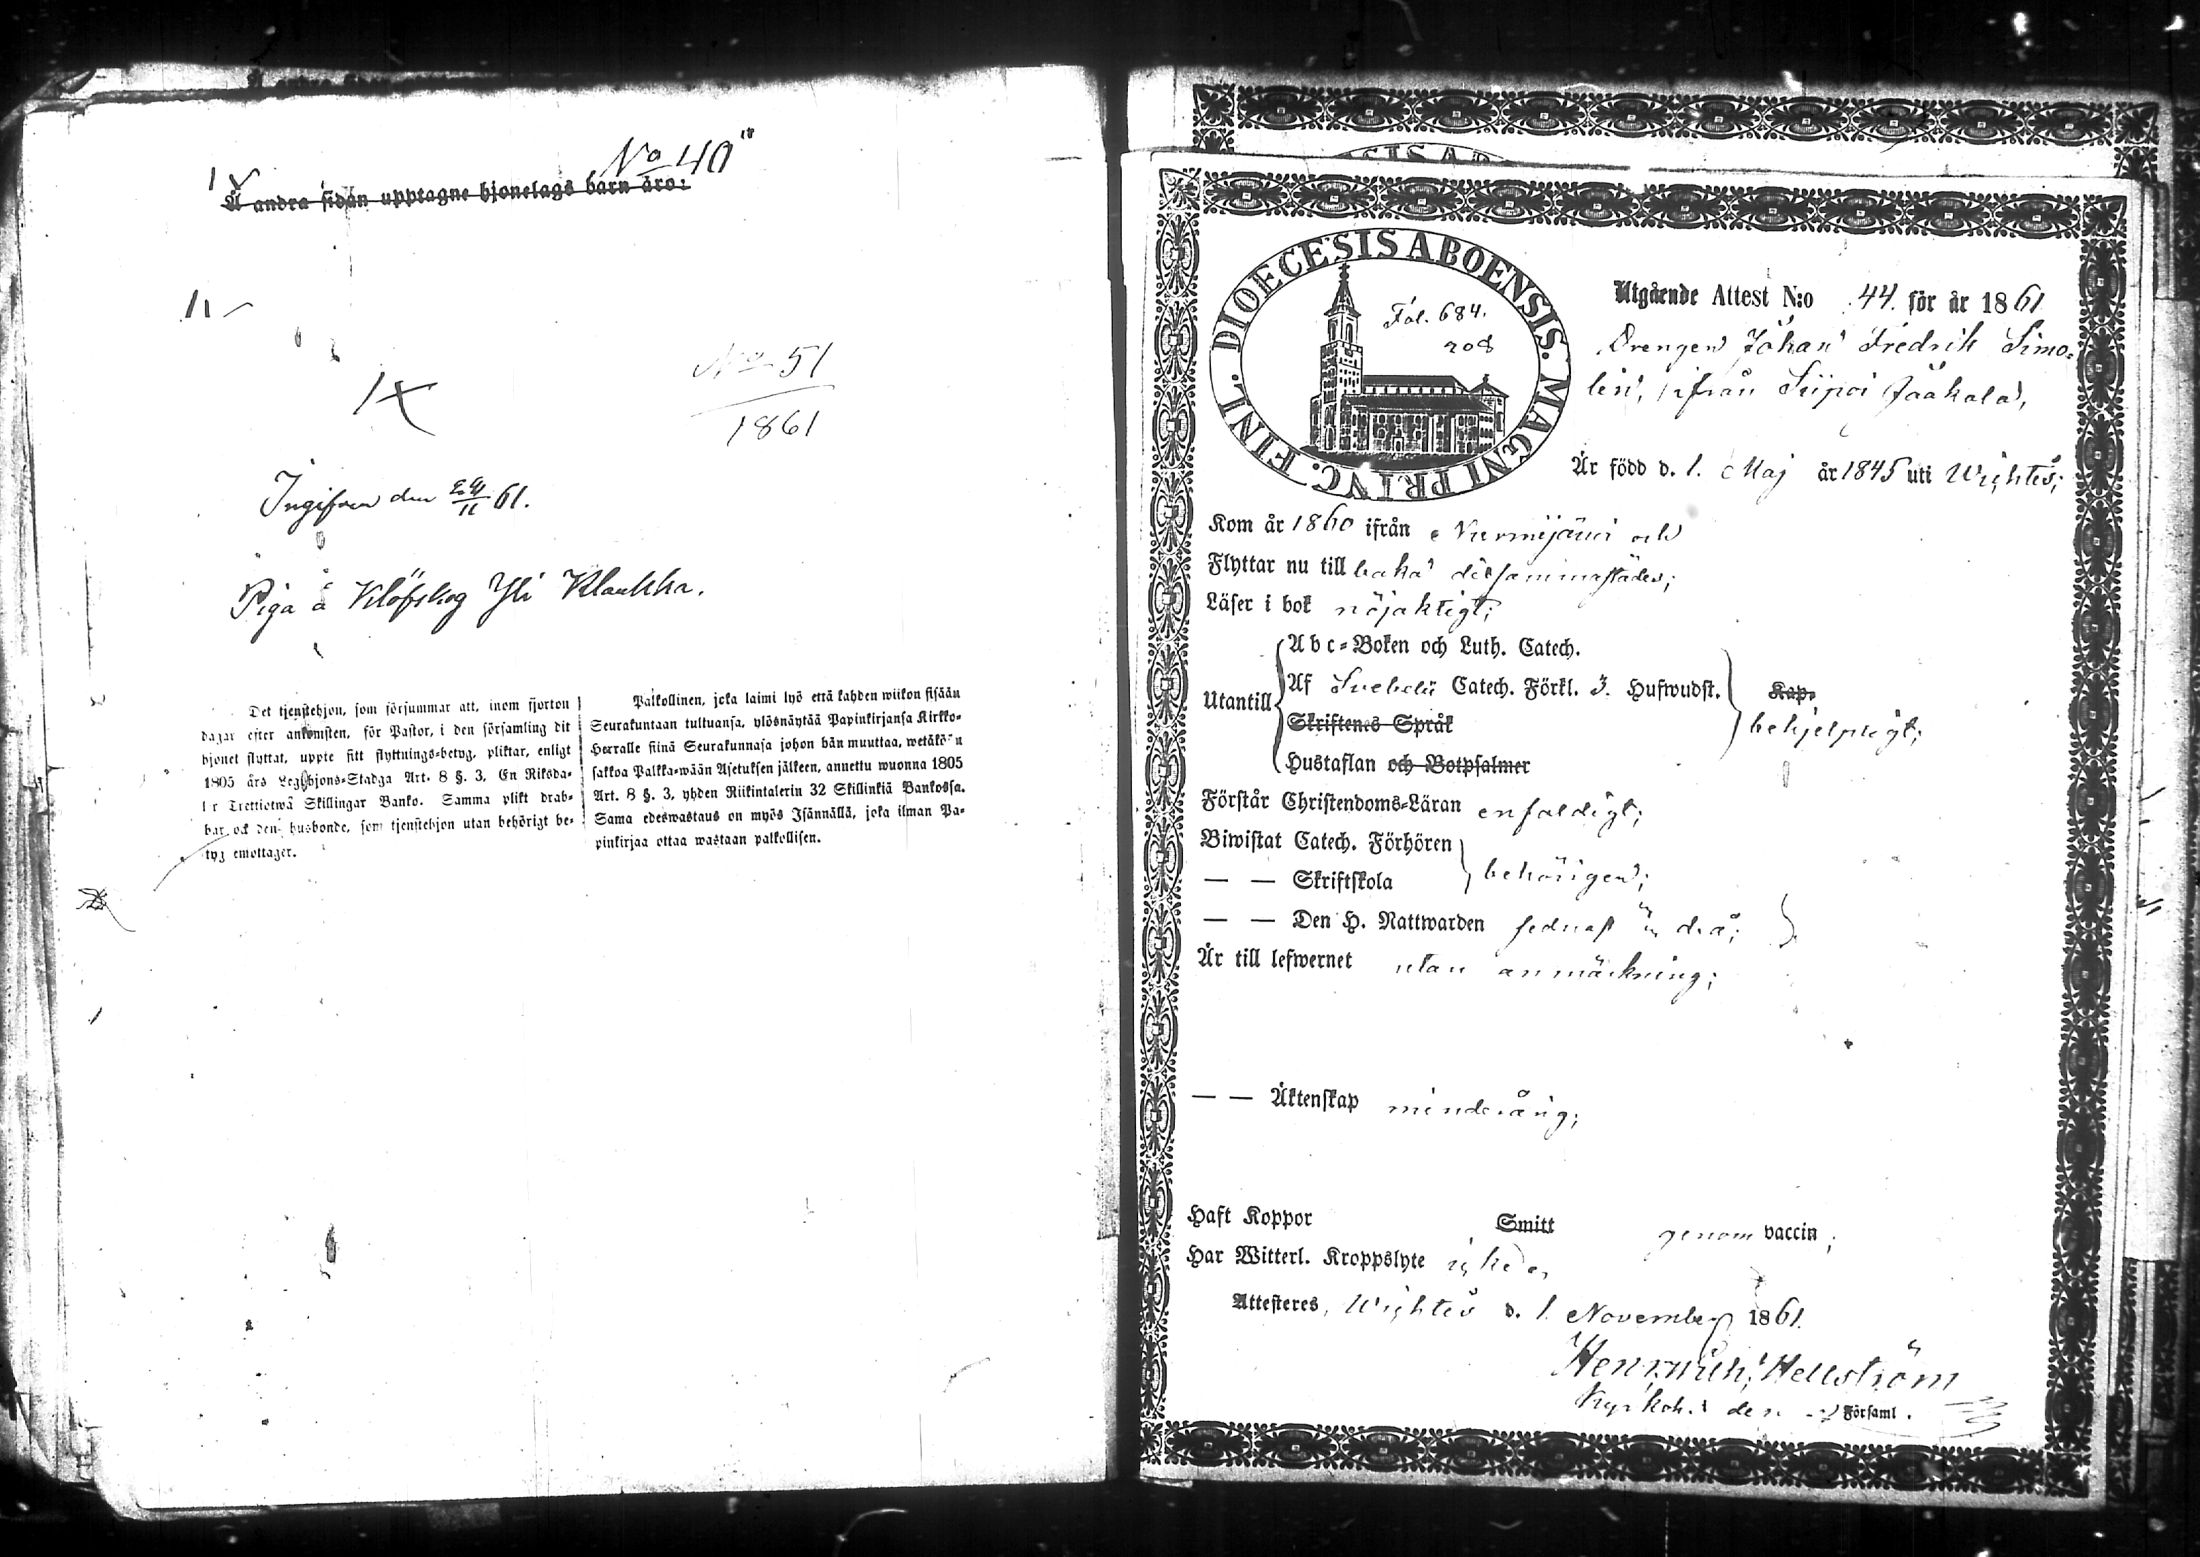 No 40
Å andra sidan upptagne hjonelags barn äro:
No 51
1861
Ingifven den 24/11 61.
Piga å Klöfskog Yli Klaukka.
Det tjenstehjon, som försummar att, inom fjorton
dagar efter ankomsten, för Pastor, i den församling dit
hjonet flyttat, uppte sitt flyttnings-betyg, pliktar, enligt
1805 års Legohjons-Stadga Art. 8 §. 3, En Riksda-
ler Trettiotwå Skillingar Banko. Samma plikt drab-
bar ock den husbonde, som tjenstehjon utan behörigt be-
tyg emottager.
Palkollinen, joka laimi lyö että kahden wiikon sisään
Seurakuntaan tultuansa, ylösnäytää Papinkirjansa Kirkko-
Herralle siinä Seurakunnasa johon hän muuttaa, wetäköön
sakkoa Palkka-wään Asetuksen jälkeen, annettu wuonna 1805
Art. 8 §. 3, yhden Riikintalerin 32 Skillinkiä Bankossa.
Sama edeswastaus on myös Isännällä, joka ilman Pa-
pinkirjaa ottaa wastaan palkollisen.
DIOECESIS ABOENSIS. MAGNI PRINC. FINL.
Fol. 684.
208
Utgående Attest N:o 44. för år 1861
Drengen Johan Fredrik Simo-
lin, ifrån Suipoi Jaakala,
Är född d. 1. Maj år 1845 uti Wichtis;
Kom år 1860 ifrån Nurmijärvi och
Flyttar nu till baka dersammastädes;
Läser i bok nöjaktigt;
Utantill
Abc-Boken och Luth. Catech.
Af Svebelii Catech. Förkl. 3. Hufwudst. Kap.
Skriftenes Språk behjelpligt;
Hustaflan och Botpsalmer
Förstår Christendoms-Läran enfaldigt;
Biwistat Catech. Förhören
— — Skriftskola behörigen;
— — Den H. Nattwarden sednast
Är till lefwernet utan anmärkning;
— — Äktenskap minderårig;
Haft Koppor Smitt genom vaccin;
Har Witterl. Kroppslyte icke.
Attesteres, Wichtis d. 1. November 1861.
Hellström
Kyrkoh. Församl.